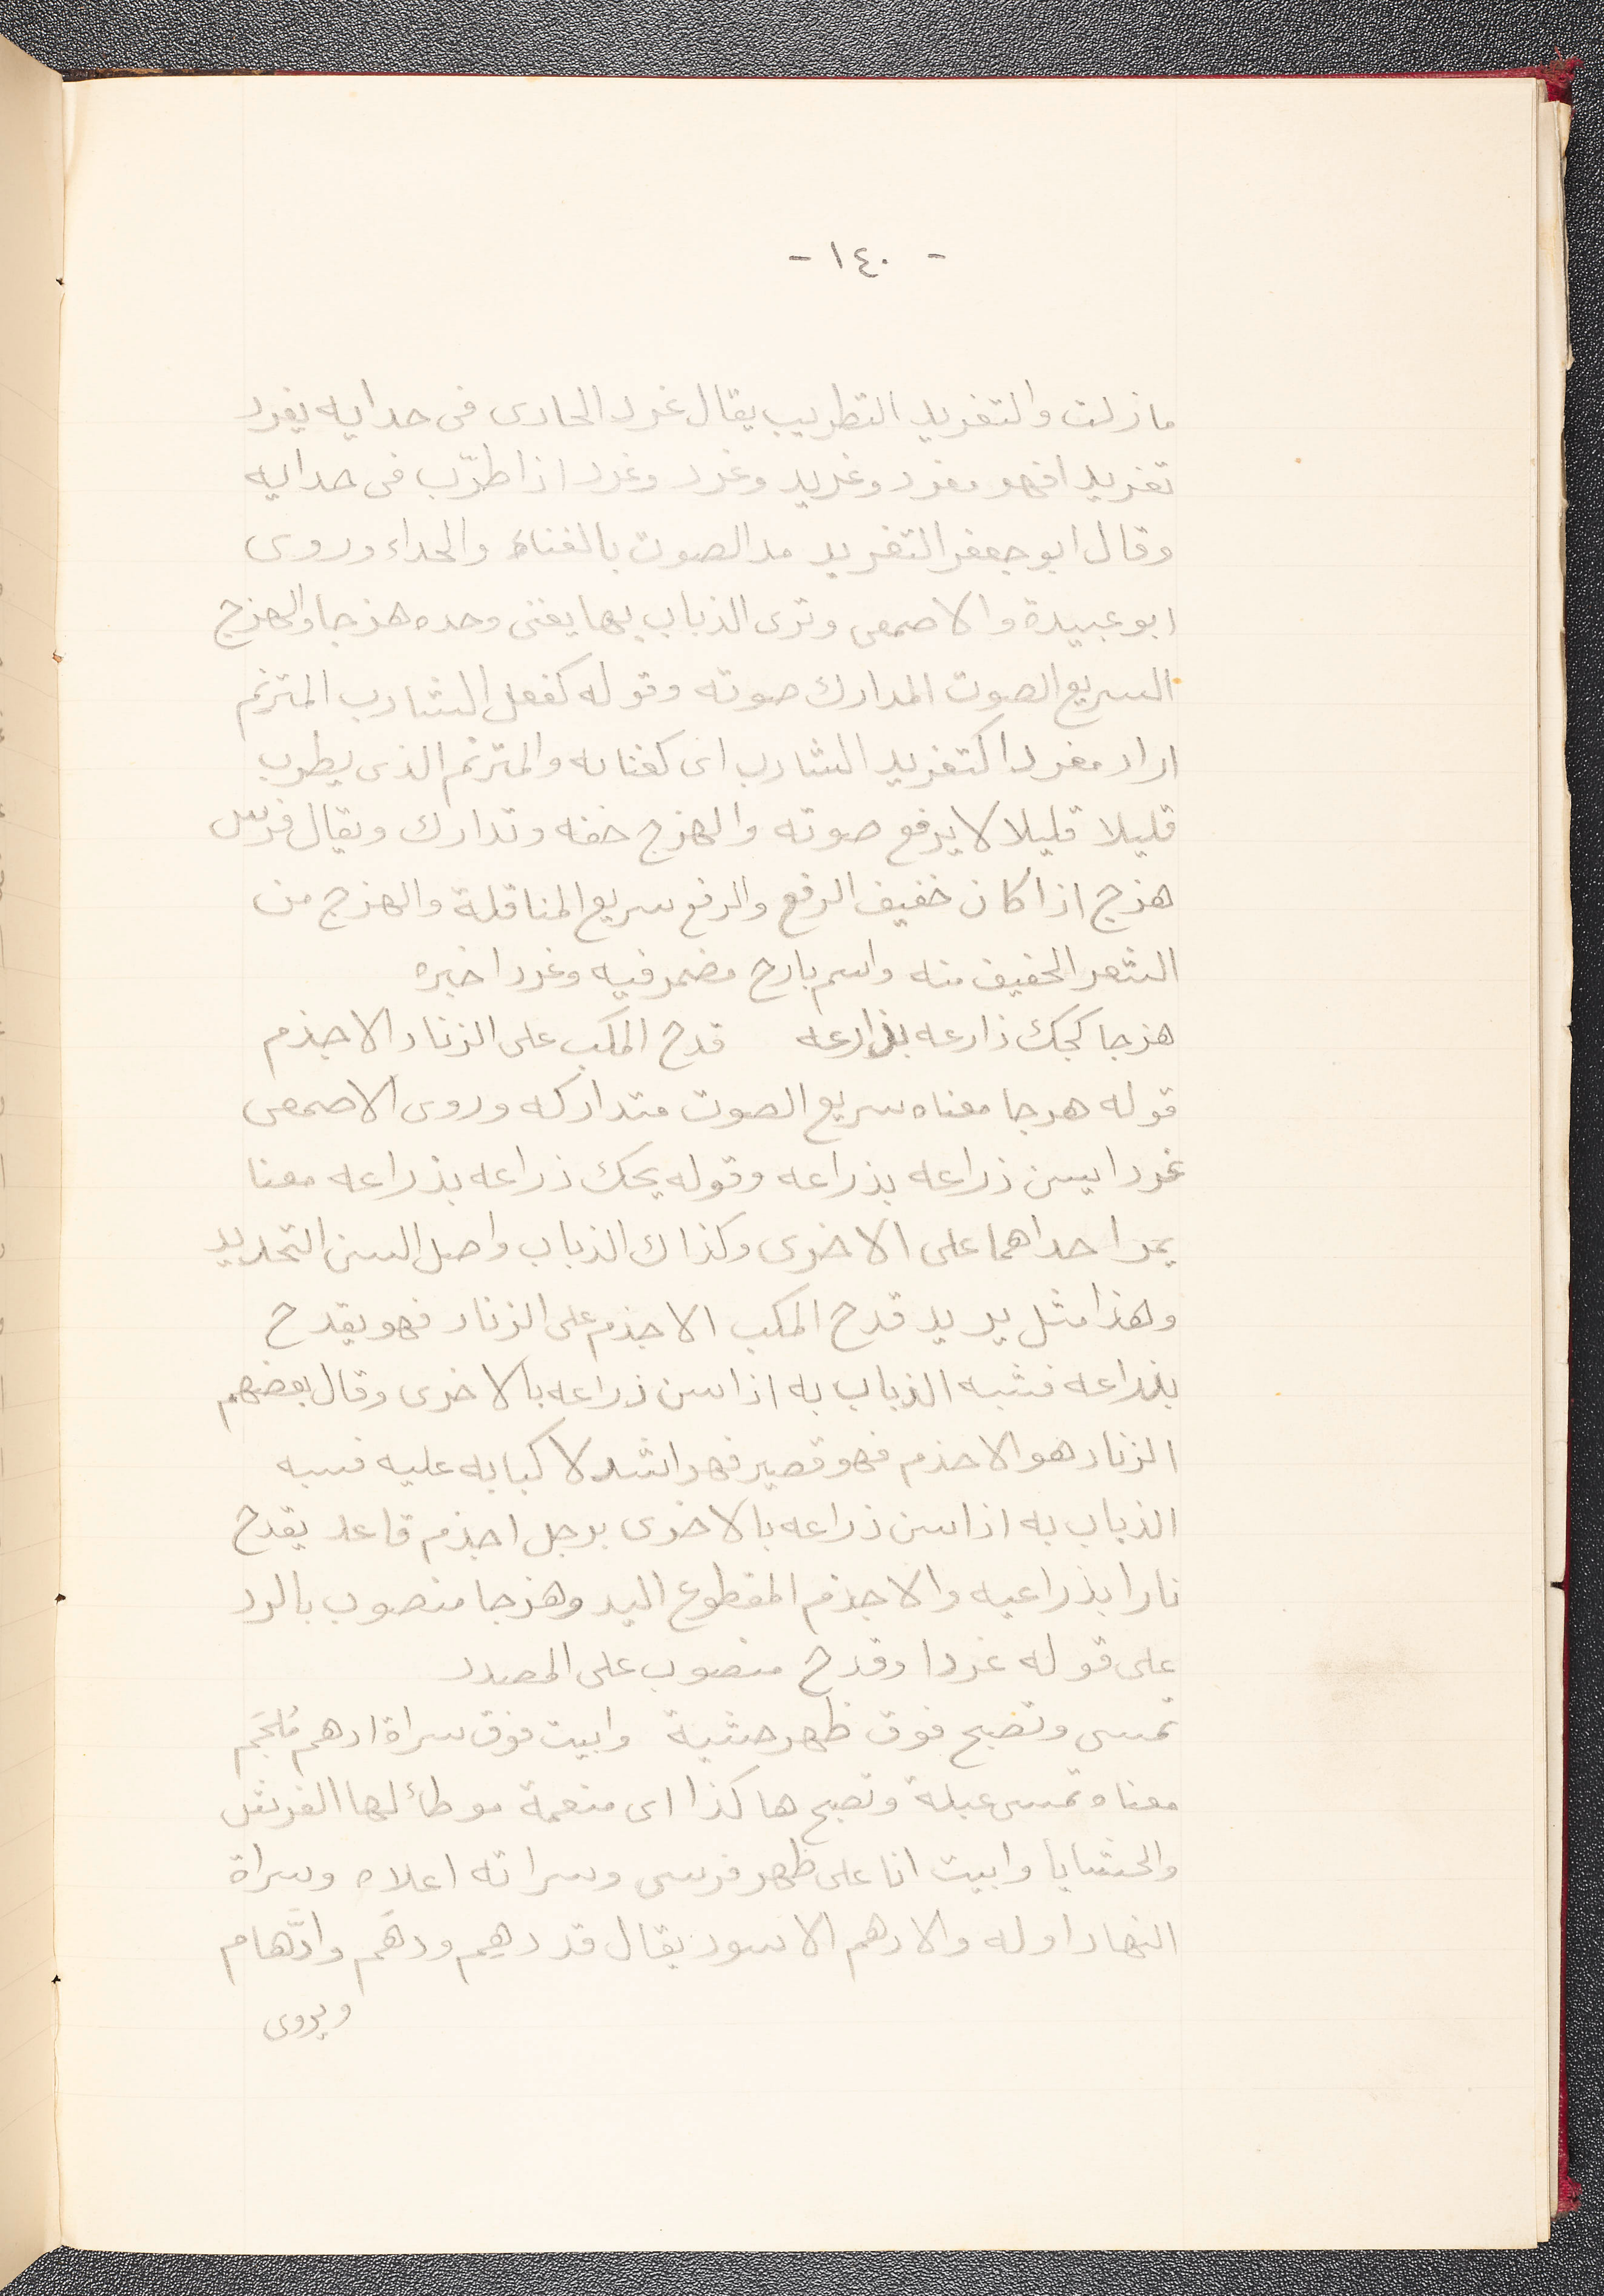 - ١٤٠ -
ما زلت والتغريد التطريب يقال غرد الحادى فى حدايه يغرد
تغريدا فهو مغرد وغريد وغرد وغرد اذا طرّب فى حدايه
وقال ابو جعفر التغريد مد الصوت بالغناء والحداء وروى
ابو عبيدة والاصمعى وترى الذباب بها يغنى وحده هزجا والهزج
السريع الصوت المدارك صوته وقوله كفعل الشارب المترنم
اراد مغردا كتغريد الشارب اى كغنايه والمترنم الذى يطرب
قليلا قليلا لا يرفع صوته والهزج خفه وتدارك ويقال فرس
هزج اذا كان خفيف الرفع والرفع سريع المناقلة والهزج من
الشعر الخفيف منه واسم بارح مضمر فيه وغردا خبره
هزجا كجك ذارعه بذارعه قدح المكب على الزناد الاجذم
قوله هرجا معناه سريع الصوت متداركه وروى الاصمعى
غردا يسن ذراعه بذراعه وقوله يحك ذراعه بذراعه معنا
يمرا حداهما على الاخرى وكذاك الذباب واصل السن التحديد
وهذا مثل يريد قدح المكب الاجذم على الزناد فهو يقدح
بذراعه فشبه الذباب به اذا سن ذراعه بالاخرى وقال بعضهم
الزناد هو الاحذم فهو قصير فهو اشد لاكبابه عليه فسبه
الذباب به اذا سن ذراعه بالاخرى برجل اجذم قاعد يقدح
نارا بذراعيه والاجذم المقطوع اليد وهزجا منصوب بالرد
على قوله غردا وقدح منصوب على المصدر
تمسى وتصبح فوق ظهر حشية وابيت فوق سراة ادهم مُلجَم
معناه تمسى عبلة وتصبح هاكذا اى منعمة موطأ لها الفرش
والحشايا وابيت انا على ظهر فرسى وسراته اعلاه وسراة
النهار اوله والادهم الاسود يقال قد دهيم ودهم وادَّهام
ويروى